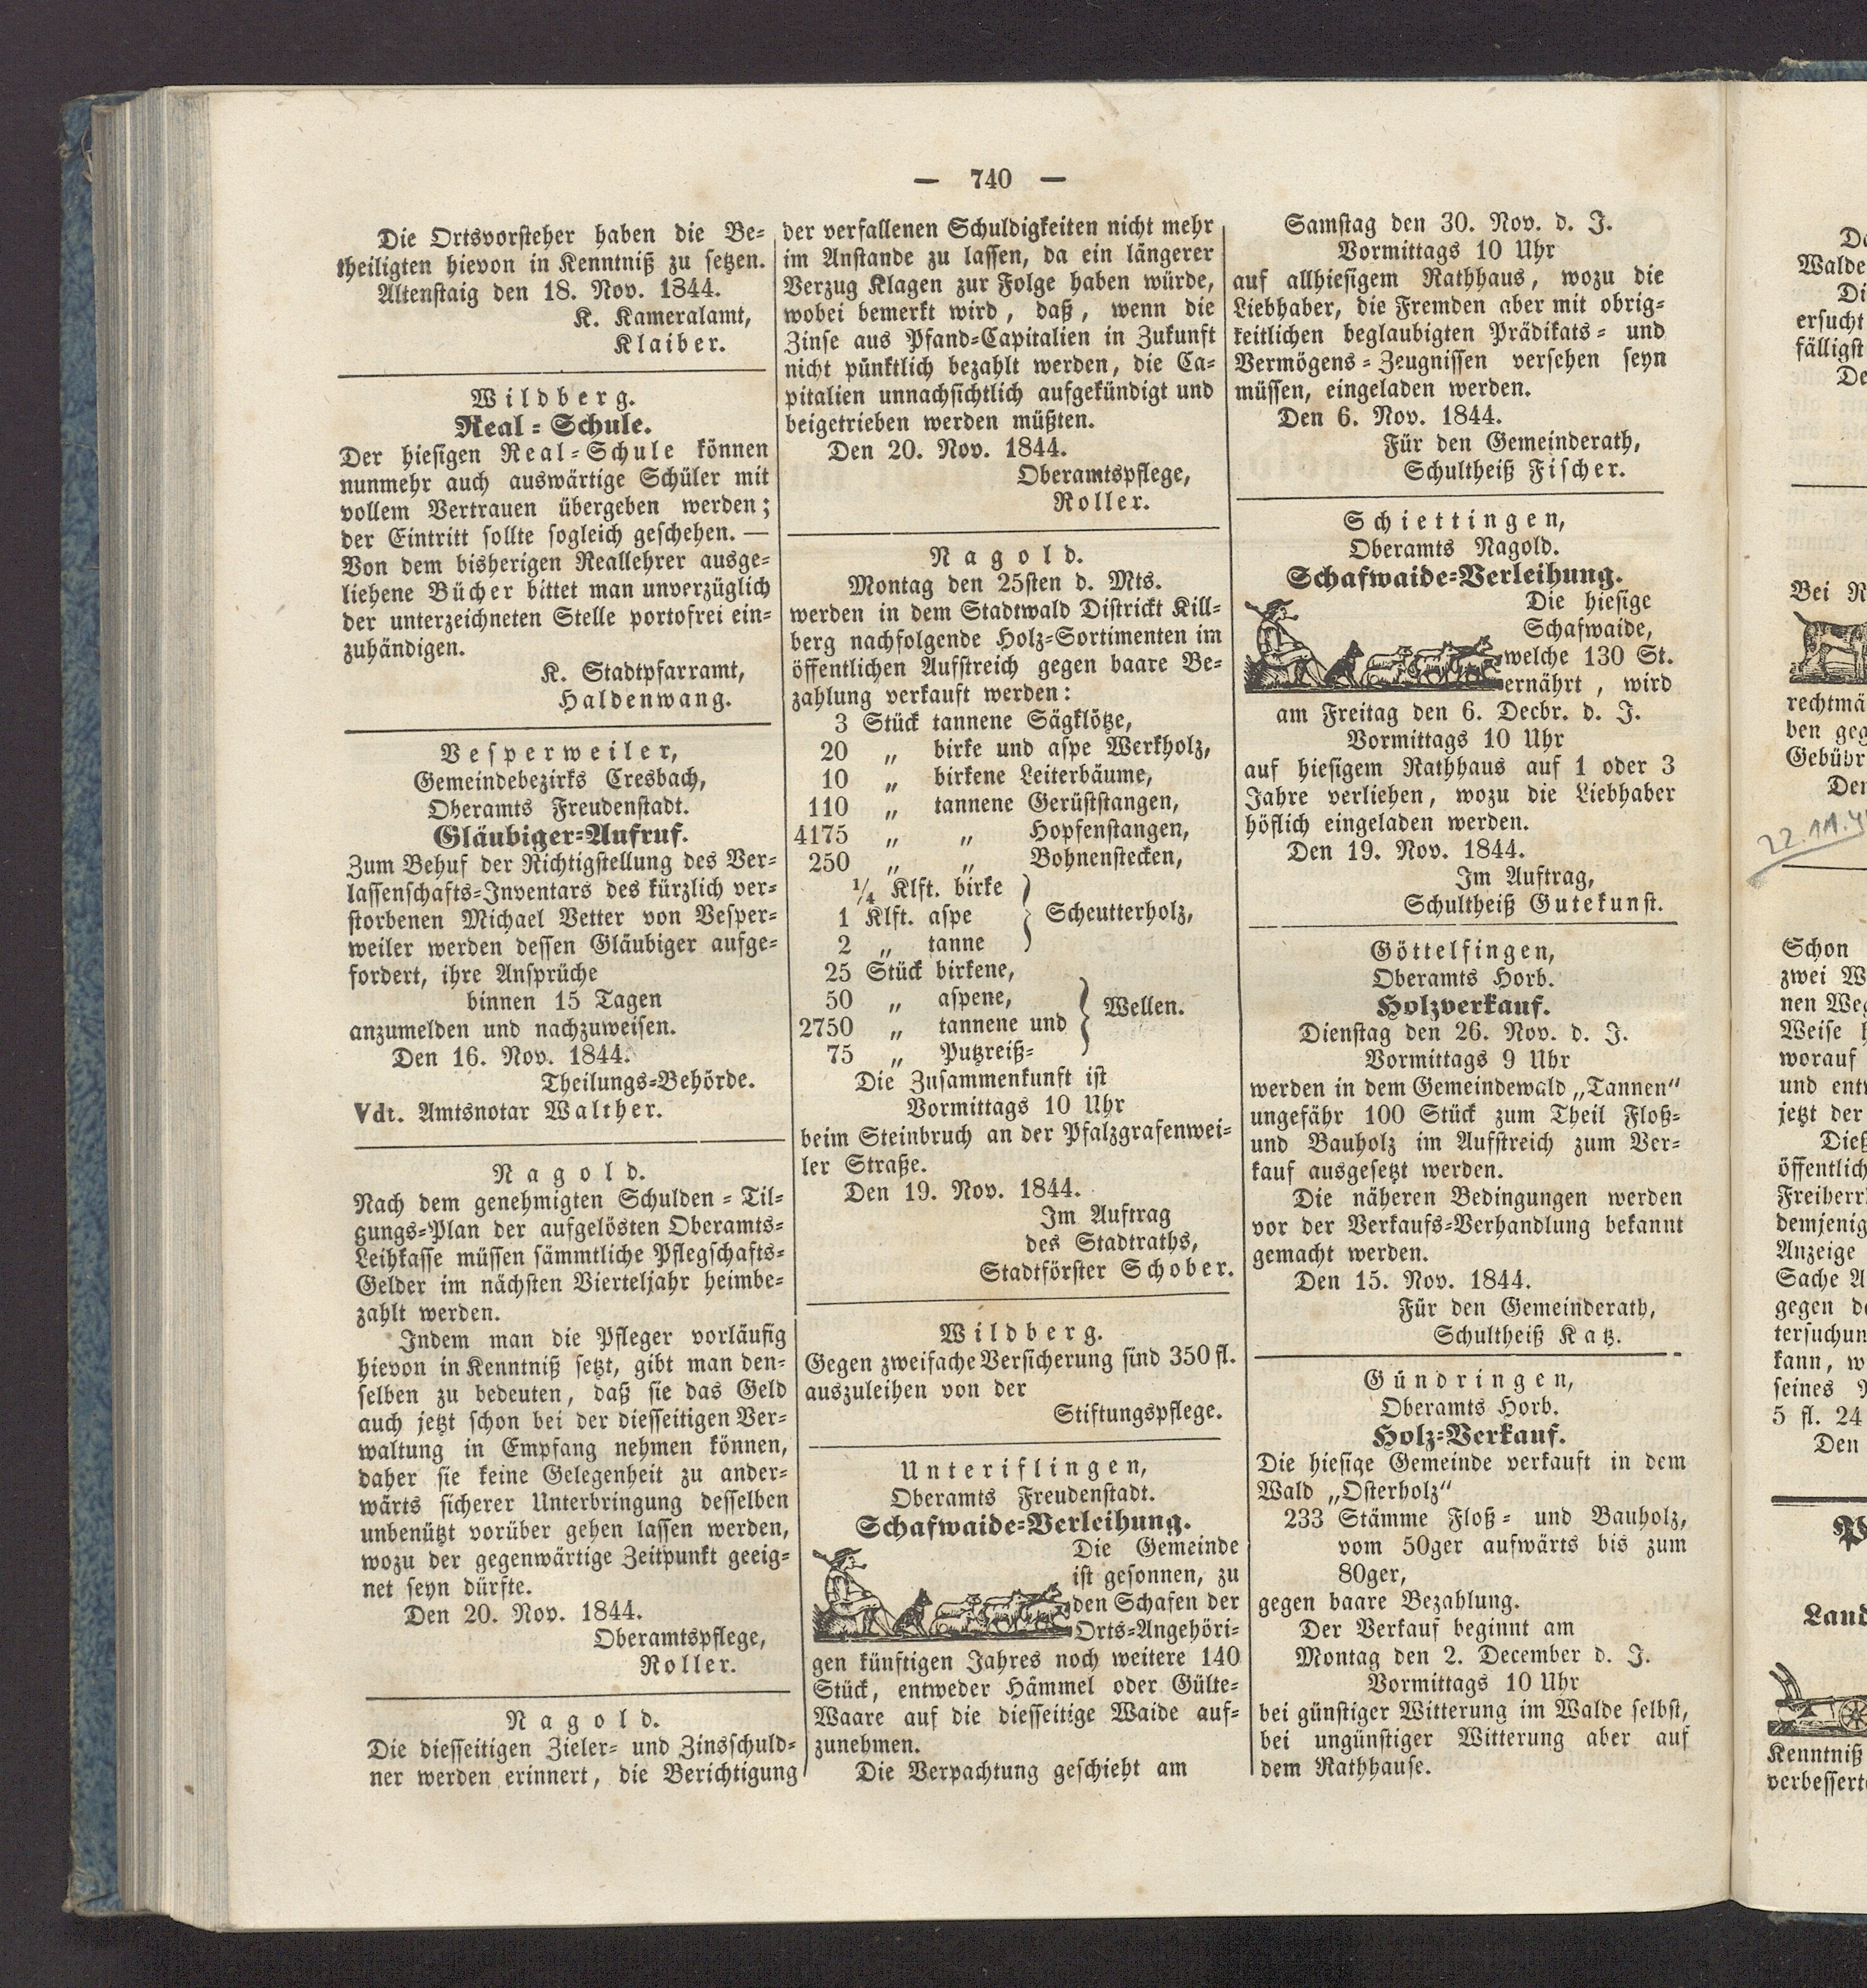 — 740 —
Die Ortsvorsteher haben die Be-
theiligten hievon in Kenntniß zu setzen.
Altenstaig den 18. Nov. 1844.
K. Kameralamt,
Klaiber.
Wildberg.
Real-Schule.
Der hiesigen Real-Schule können
nunmehr auch auswärtige Schüler mit
vollem Vertrauen übergeben werden;
der Eintritt sollte sogleich geschehen. —
Von dem bisherigen Reallehrer ausge-
liehene Bücher bittet man unverzüglich
der unterzeichneten Stelle portofrei ein-
zuhändigen.
K. Stadtpfarramt,
Haldenwang.
Vesperweiler,
Gemeindebezirks Cresbach,
Oberamts Freudenstadt.
Gläubiger-Aufruf.
Zum Behuf der Richtigstellung des Ver-
lassenschafts-Inventars des kürzlich ver-
storbenen Michael Vetter von Vesper-
weiler werden dessen Gläubiger aufge-
fordert, ihre Ansprüche
binnen 15 Tagen
anzumelden und nachzuweisen.
Den 16. Nov. 1844.
Theilungs-Behörde.
Vdt. Amtsnotar Walther.
Nagold.
Nach dem genehmigten Schulden-Til-
gungs-Plan der aufgelösten Oberamts-
Leihkasse müssen sämmtliche Pflegschafts-
Gelder im nächsten Vierteljahr heimbe-
zahlt werden.
Indem man die Pfleger vorläufig
hievon in Kenntniß setzt, gibt man den-
selben zu bedeuten, daß sie das Geld
auch jetzt schon bei der diesseitigen Ver-
waltung in Empfang nehmen können,
daher sie keine Gelegenheit zu ander-
wärts sicherer Unterbringung desselben
unbenützt vorüber gehen lassen werden,
wozu der gegenwärtige Zeitpunkt geeig-
net seyn dürfte.
Den 20. Nov. 1844.
Oberamtspflege,
Roller.
Nagold.
Die diesseitigen Zieler- und Zinsschuld-
ner werden erinnert, die Berichtigung
der verfallenen Schuldigkeiten nicht mehr
im Anstande zu lassen, da ein längerer
Verzug Klagen zur Folge haben würde,
wobei bemerkt wird, daß, wenn die
Zinse aus Pfand-Capitalien in Zukunft
nicht pünktlich bezahlt werden, die Ca-
pitalien unnachsichtlich aufgekündigt und
beigetrieben werden müßten.
Den 20. Nov. 1844.
Oberamtspflege,
Roller.
Nagold.
Montag den 25sten d. Mts.
werden in dem Stadtwald Districkt Kill-
berg nachfolgende Holz-Sortimenten im
öffentlichen Aufstreich gegen baare Be-
zahlung verkauft werden:
3 Stück tannene Sägklötze,
20 „ birke und aspe Werkholz,
10 „ birkene Leiterbäume,
110 „ tannene Gerüststangen,
4175 „ „ Hopfenstangen,
250 „ „ Bohnenstecken,
1/4 Klft. birke
1 Klft. aspe } Scheutterholz,
2 „ tanne
25 Stück birkene,
50 „ aspene, } Wellen.
2750 „ tannene und
75 „ Putzreiß-
Die Zusammenkunft ist
Vormittags 10 Uhr
beim Steinbruch an der Pfalzgrafenwei-
ler Straße.
Den 19. Nov. 1844.
Im Auftrag
des Stadtraths,
Stadtförster Schober.
Wildberg.
Gegen zweifache Versicherung sind 350 fl.
auszuleihen von der
Stiftungspflege.
Unteriflingen,
Oberamts Freudenstadt.
Schafwaide-Verleihung.
Die Gemeinde
ist gesonnen, zu
den Schafen der
Orts-Angehöri-
gen künftigen Jahres noch weitere 140
Stück, entweder Hämmel oder Gülte-
Waare auf die diesseitige Waide auf-
zunehmen.
Die Verpachtung geschieht am
Samstag den 30. Nov. d. J.
Vormittags 10 Uhr
auf allhiesigem Rathhaus, wozu die
Liebhaber, die Fremden aber mit obrig-
keitlichen beglaubigten Prädikats- und
Vermögens-Zeugnissen versehen seyn
müssen, eingeladen werden.
Den 6. Nov. 1844.
Für den Gemeinderath,
Schultheiß Fischer.
Schiettingen,
Oberamts Nagold.
Schafwaide-Verleihung.
Die hiesige
Schafwaide,
welche 130 St.
ernährt, wird
am Freitag den 6. Decbr. d. J.
Vormittags 10 Uhr
auf hiesigem Rathhaus auf 1 oder 3
Jahre verliehen, wozu die Liebhaber
höflich eingeladen werden.
Den 19. Nov. 1844.
Im Auftrag,
Schultheiß Gutekunst.
Göttelfingen,
Oberamts Horb.
Holzverkauf.
Dienstag den 26. Nov. d. J.
Vormittags 9 Uhr
werden in dem Gemeindewald „Tannen“
ungefähr 100 Stück zum Theil Floß-
und Bauholz im Aufstreich zum Ver-
kauf ausgesetzt werden.
Die näheren Bedingungen werden
vor der Verkaufs-Verhandlung bekannt
gemacht werden.
Den 15. Nov. 1844.
Für den Gemeinderath,
Schultheiß Katz.
Gündringen,
Oberamts Horb.
Holz-Verkauf.
Die hiesige Gemeinde verkauft in dem
Wald „Osterholz“
233 Stämme Floß- und Bauholz,
vom 50ger aufwärts bis zum
80ger,
gegen baare Bezahlung.
Der Verkauf beginnt am
Montag den 2. December d. J.
Vormittags 10 Uhr
bei günstiger Witterung im Walde selbst,
bei ungünstiger Witterung aber auf
dem Rathhause.
Walde
Di
ersucht
fälligst
De
Bei
rechtmä
ben geg
Gebühr
Den
22.11.
Schon
zwei W
nen Weg
Weise
worauf
und ent
jetzt der
Dieß
öffentlich
Freiherr
demjenig
Anzeige
Sache A
gegen de
tersuchun
kann, w
seines
5 fl. 24
Den
Land
Kenntniß
verbessert